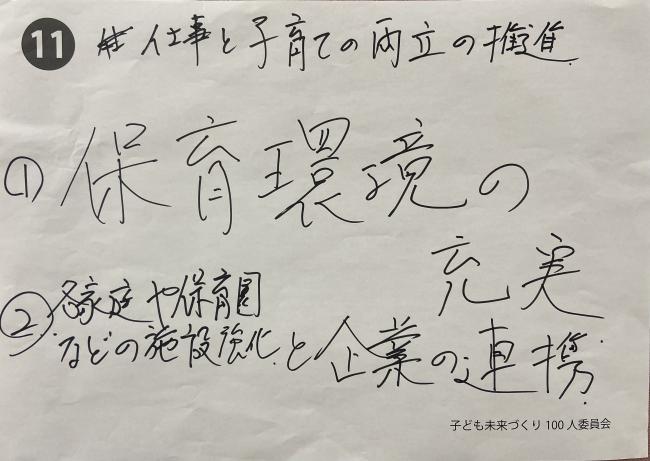 11 仕事と子育ての両立の推進
① 保育環境の
充実
② 各家庭や保育園
などの施設強化と企業の連携
子ども未来づくり100人委員会